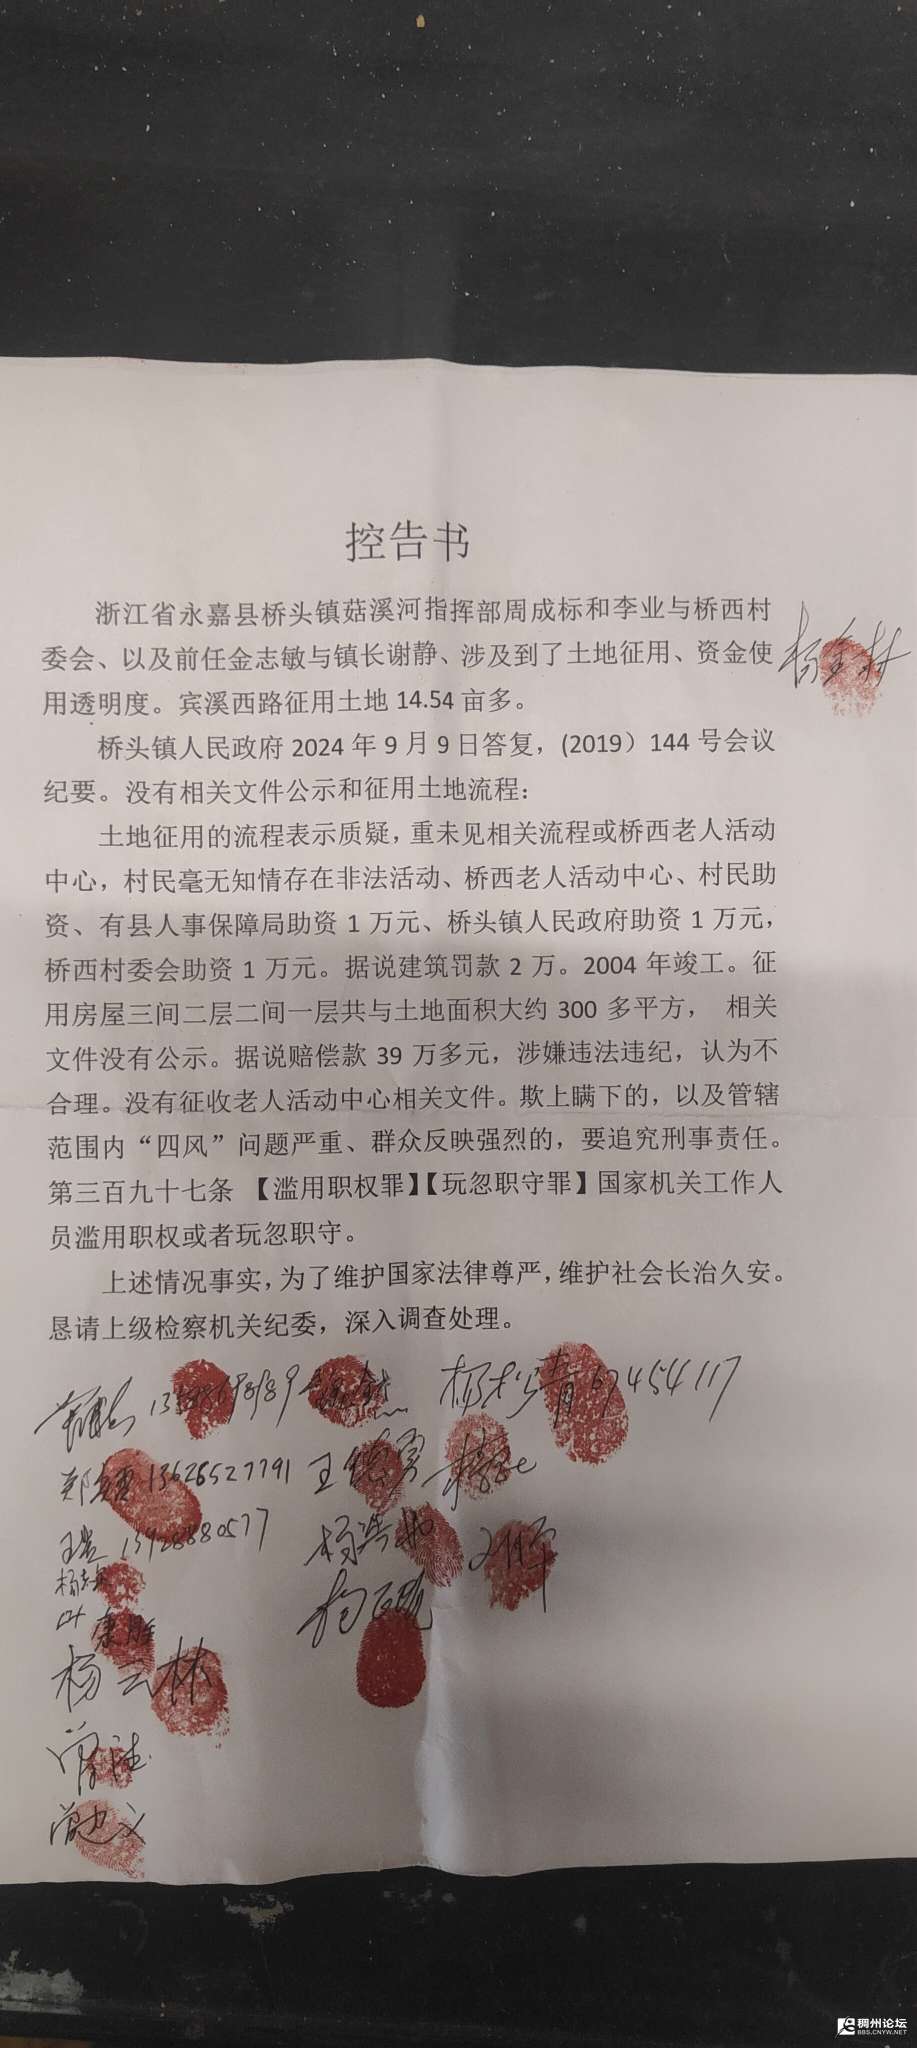 控告书
浙江省永嘉县桥头镇菇溪河指挥部周成标和李业与桥西村
委会、以及前任金志敏与镇长谢静、涉及到了土地征用、资金使
用透明度。宾溪西路征用土地 14.54 亩多。
桥头镇人民政府 2024 年 9 月 9 日答复，(2019）144 号会议
纪要。没有相关文件公示和征用土地流程：
土地征用的流程表示质疑，重未见相关流程或桥西老人活动
中心，村民毫无知情存在非法活动、桥西老人活动中心、村民助
资、有县人事保障局助资 1 万元、桥头镇人民政府助资 1 万元，
桥西村委会助资 1 万元。据说建筑罚款 2 万。2004 年竣工。征
用房屋三间二层二间一层共与土地面积大约 300 多平方， 相关
文件没有公示。据说赔偿款 39 万多元，涉嫌违法违纪，认为不
合理。没有征收老人活动中心相关文件。欺上瞒下的，以及管辖
范围内“四风”问题严重、群众反映强烈的，要追究刑事责任。
第三百九十七条 【滥用职权罪】【玩忽职守罪】国家机关工作人
员滥用职权或者玩忽职守。
上述情况事实，为了维护国家法律尊严，维护社会长治久安。
恳请上级检察机关纪委，深入调查处理。
13626527791
叶康胜
杨云林
稠州论坛
BBS.CNYW.NET